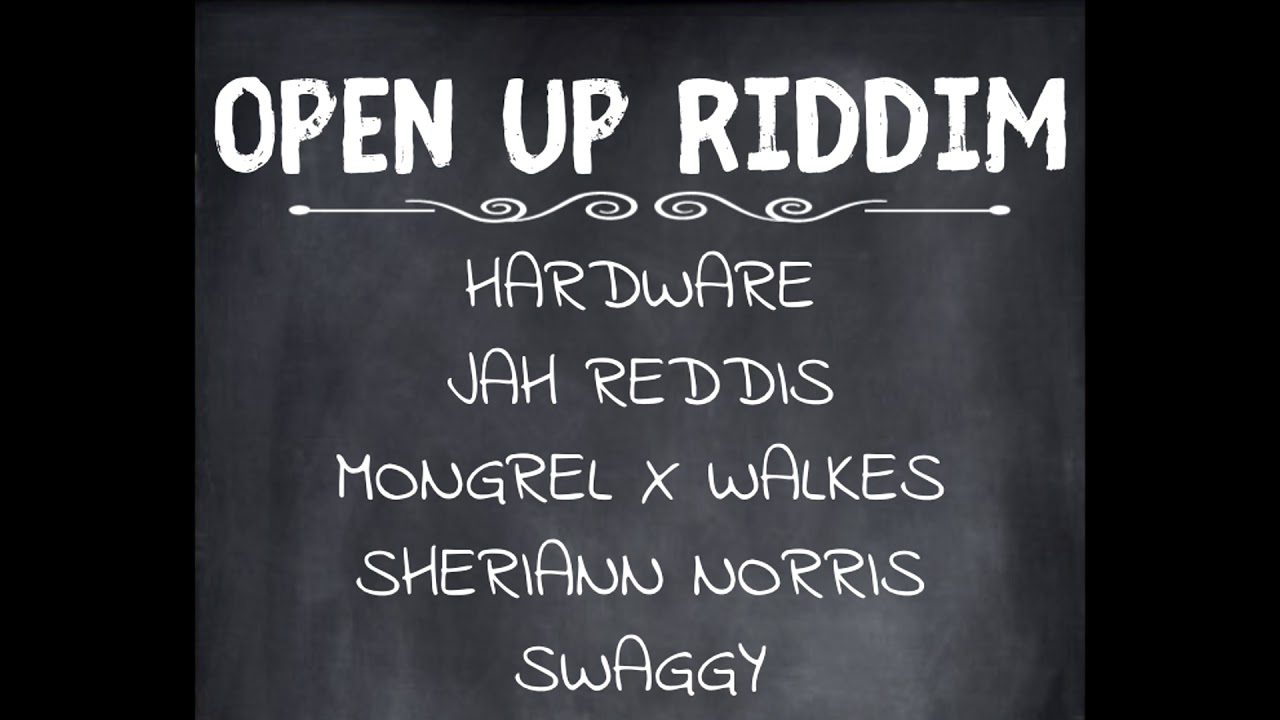 OPEN UP RIDDIM
HARDWARE
JAH REDDIS
MONGREL X WALKES
SHERIANN NORRIS
SWAGGY